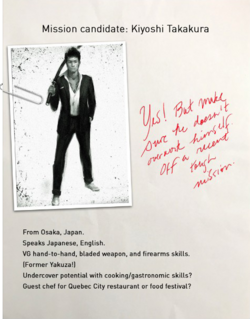 Mission candidate: Kiyoshi Takakura
Yes! But make
sure he doesn't
overwork himself
off a recent
tough
mission.
From Osaka, Japan.
Speaks Japanese, English.
VG hand-to-hand, bladed weapon, and firearms skills.
(Former Yakuza!)
Undercover potential with cooking/gastronomic skills?
Guest chef for Quebec City restaurant or food festival?